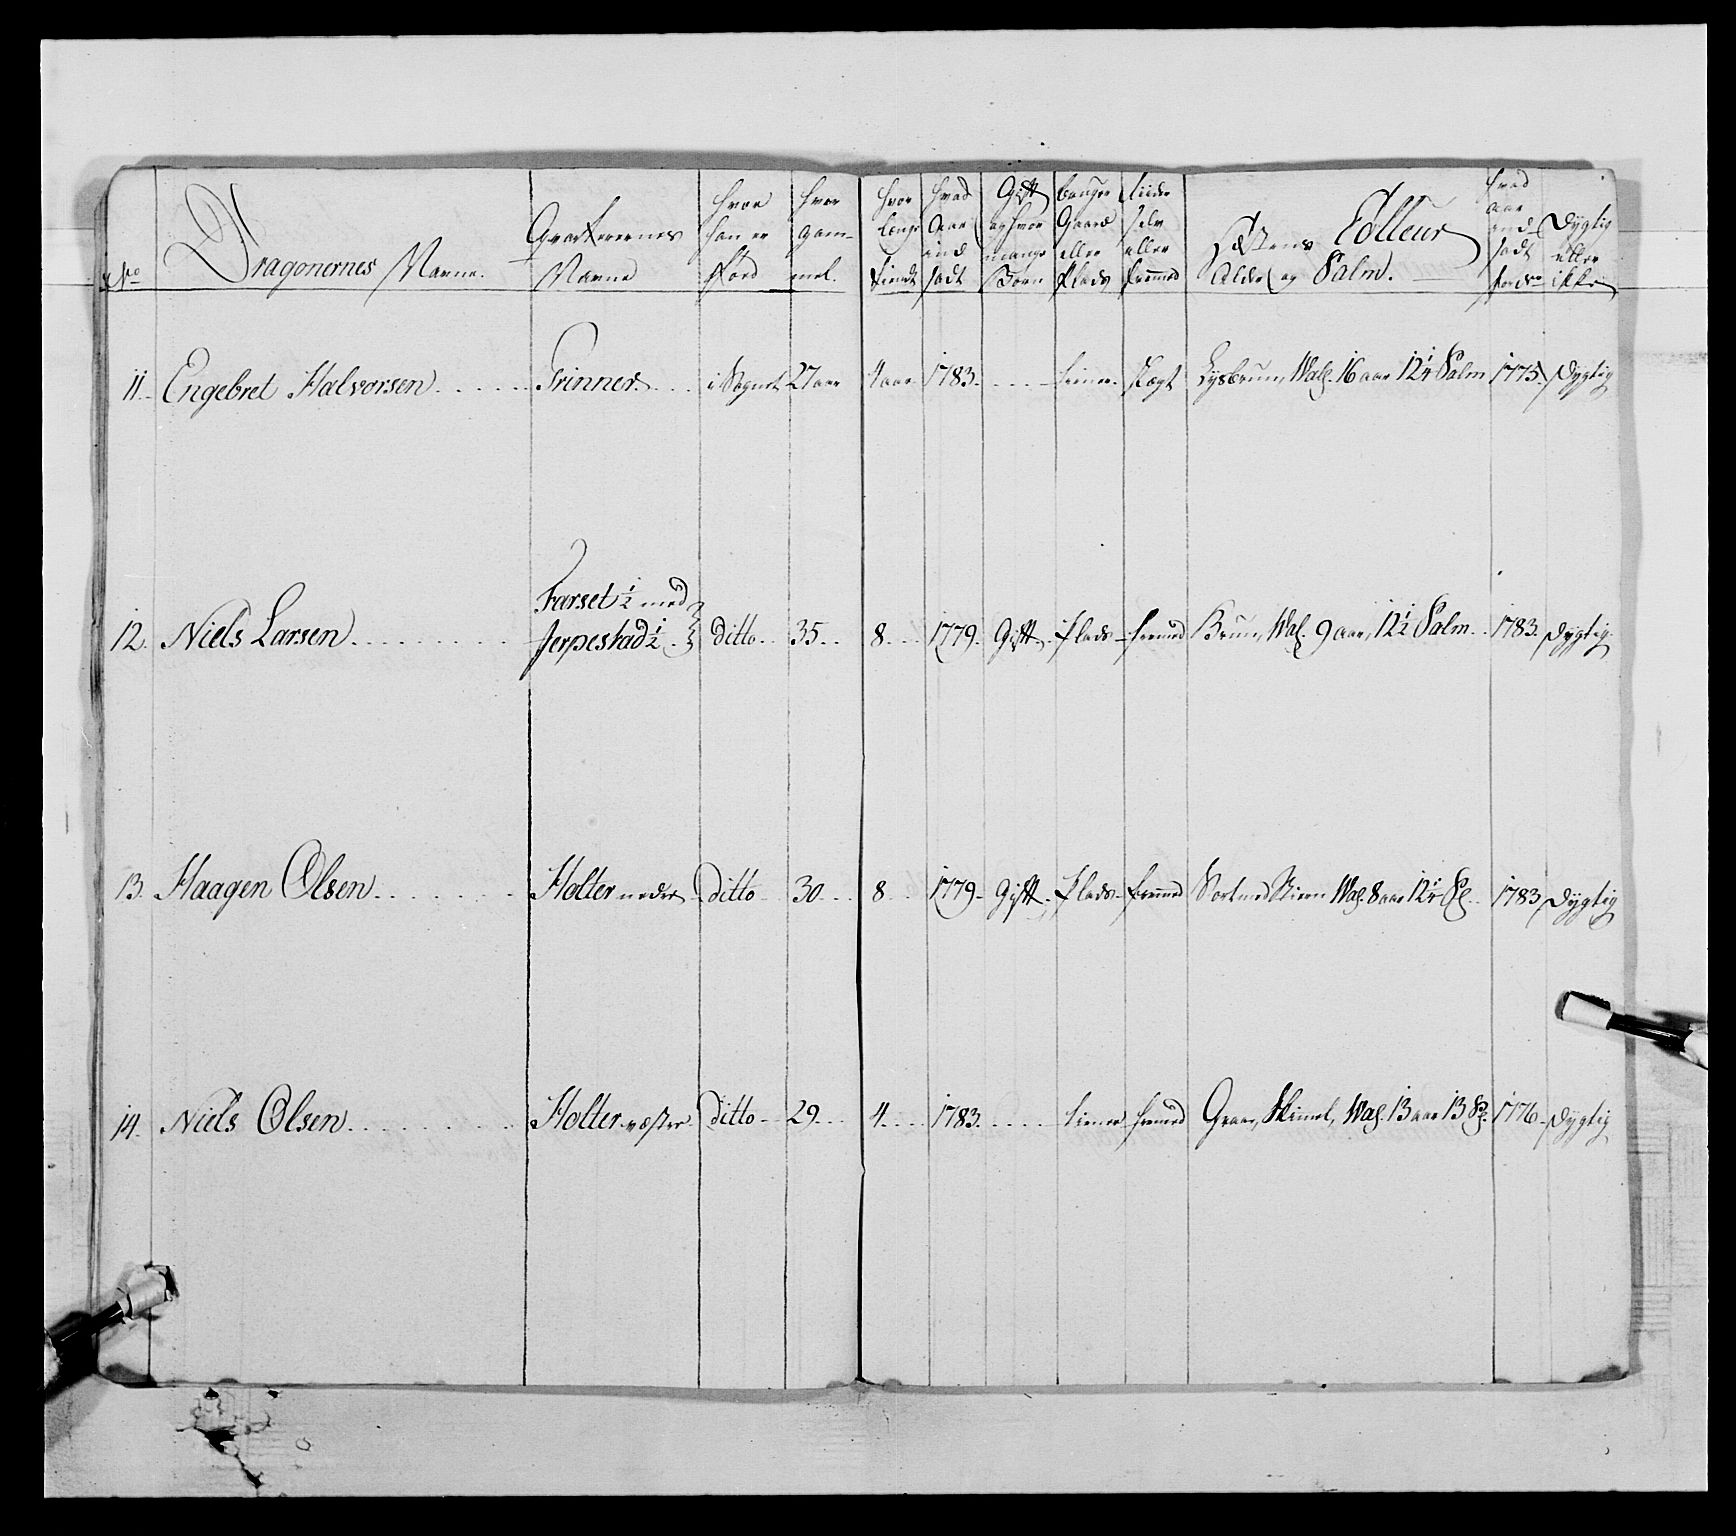 No Dragonernes Navne. Qvarterernes Navne hvor han er född hvor gam- mel. hvor længe tient hvad Aar ind sadt Gift og hvor mange Börn bruger Gaard eller Plads tiener selv eller fremmed Hæstens Colleur Alder og Palm. hvad Aar ind sadt Dygtig eller ikke
11. Engebret Halvorsen Grinner i Sognet 27 aar 4 aar 1783 tiener Lysbrun, Wal. 16 aar 12 1/4 Palm 1775 Dygtig
12. Niels Larsen Farset 1/2 med Jerpestad 1/2 ditto 35 8 1779 Gift Plads fremed Brun, Wal. 9 aar, 12 1/2 Palm 1783 Dygtig
13. Haagen Olsen Holter nedre ditto 30 8 1779 Gift Plads fremed Sort med Stiern Wal. 8 aar 12 1/4 Pl. 1783 Dygtig
14. Niels Olsen Holter vestre ditto 29 4 1783 tiener fremed Graae, Skimel, Wal. 13 aar 13 Pl. 1776 Dygtig